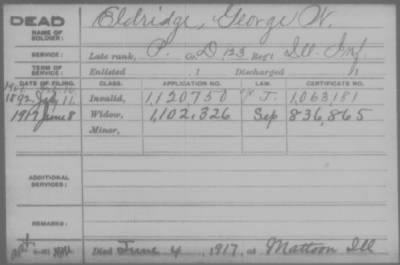 DEAD
NAME OF SOLDIER: Eldridge, George W.
SERVICE: Late rank, P. Co. D 123 Reg't Ill. Inf
TERM OF SERVICE: Enlisted , 1 Discharged , 1
DATE OF FILING. CLASS. APPLICATION NO. LAW. CERTIFICATE NO.
1892, July 11. Invalid, 1,120,750 J. 1,063,181
1917 June 8 Widow, 1,102,326 Sep 836,865
Minor,
ADDITIONAL SERVICES:
REMARKS:
Died June 4, 1917, at Mattoon Ill